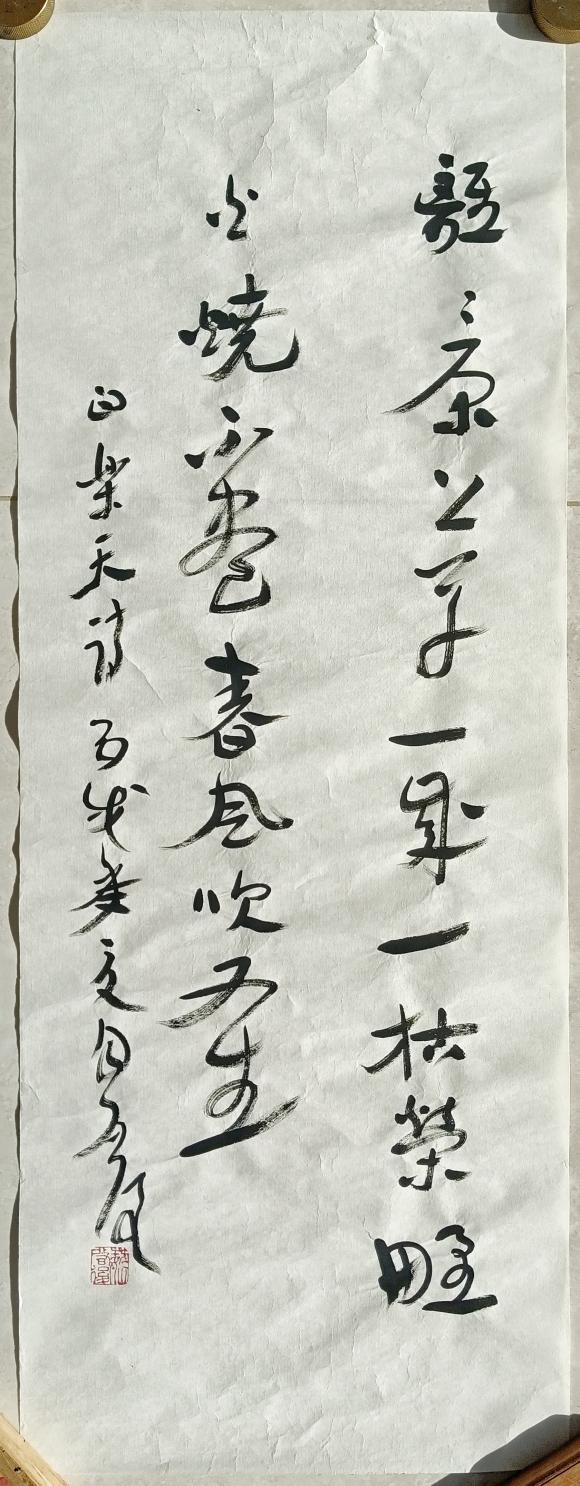 離〻原上草一歲一枯榮野
火燒不盡春風吹又生
白樂天詩